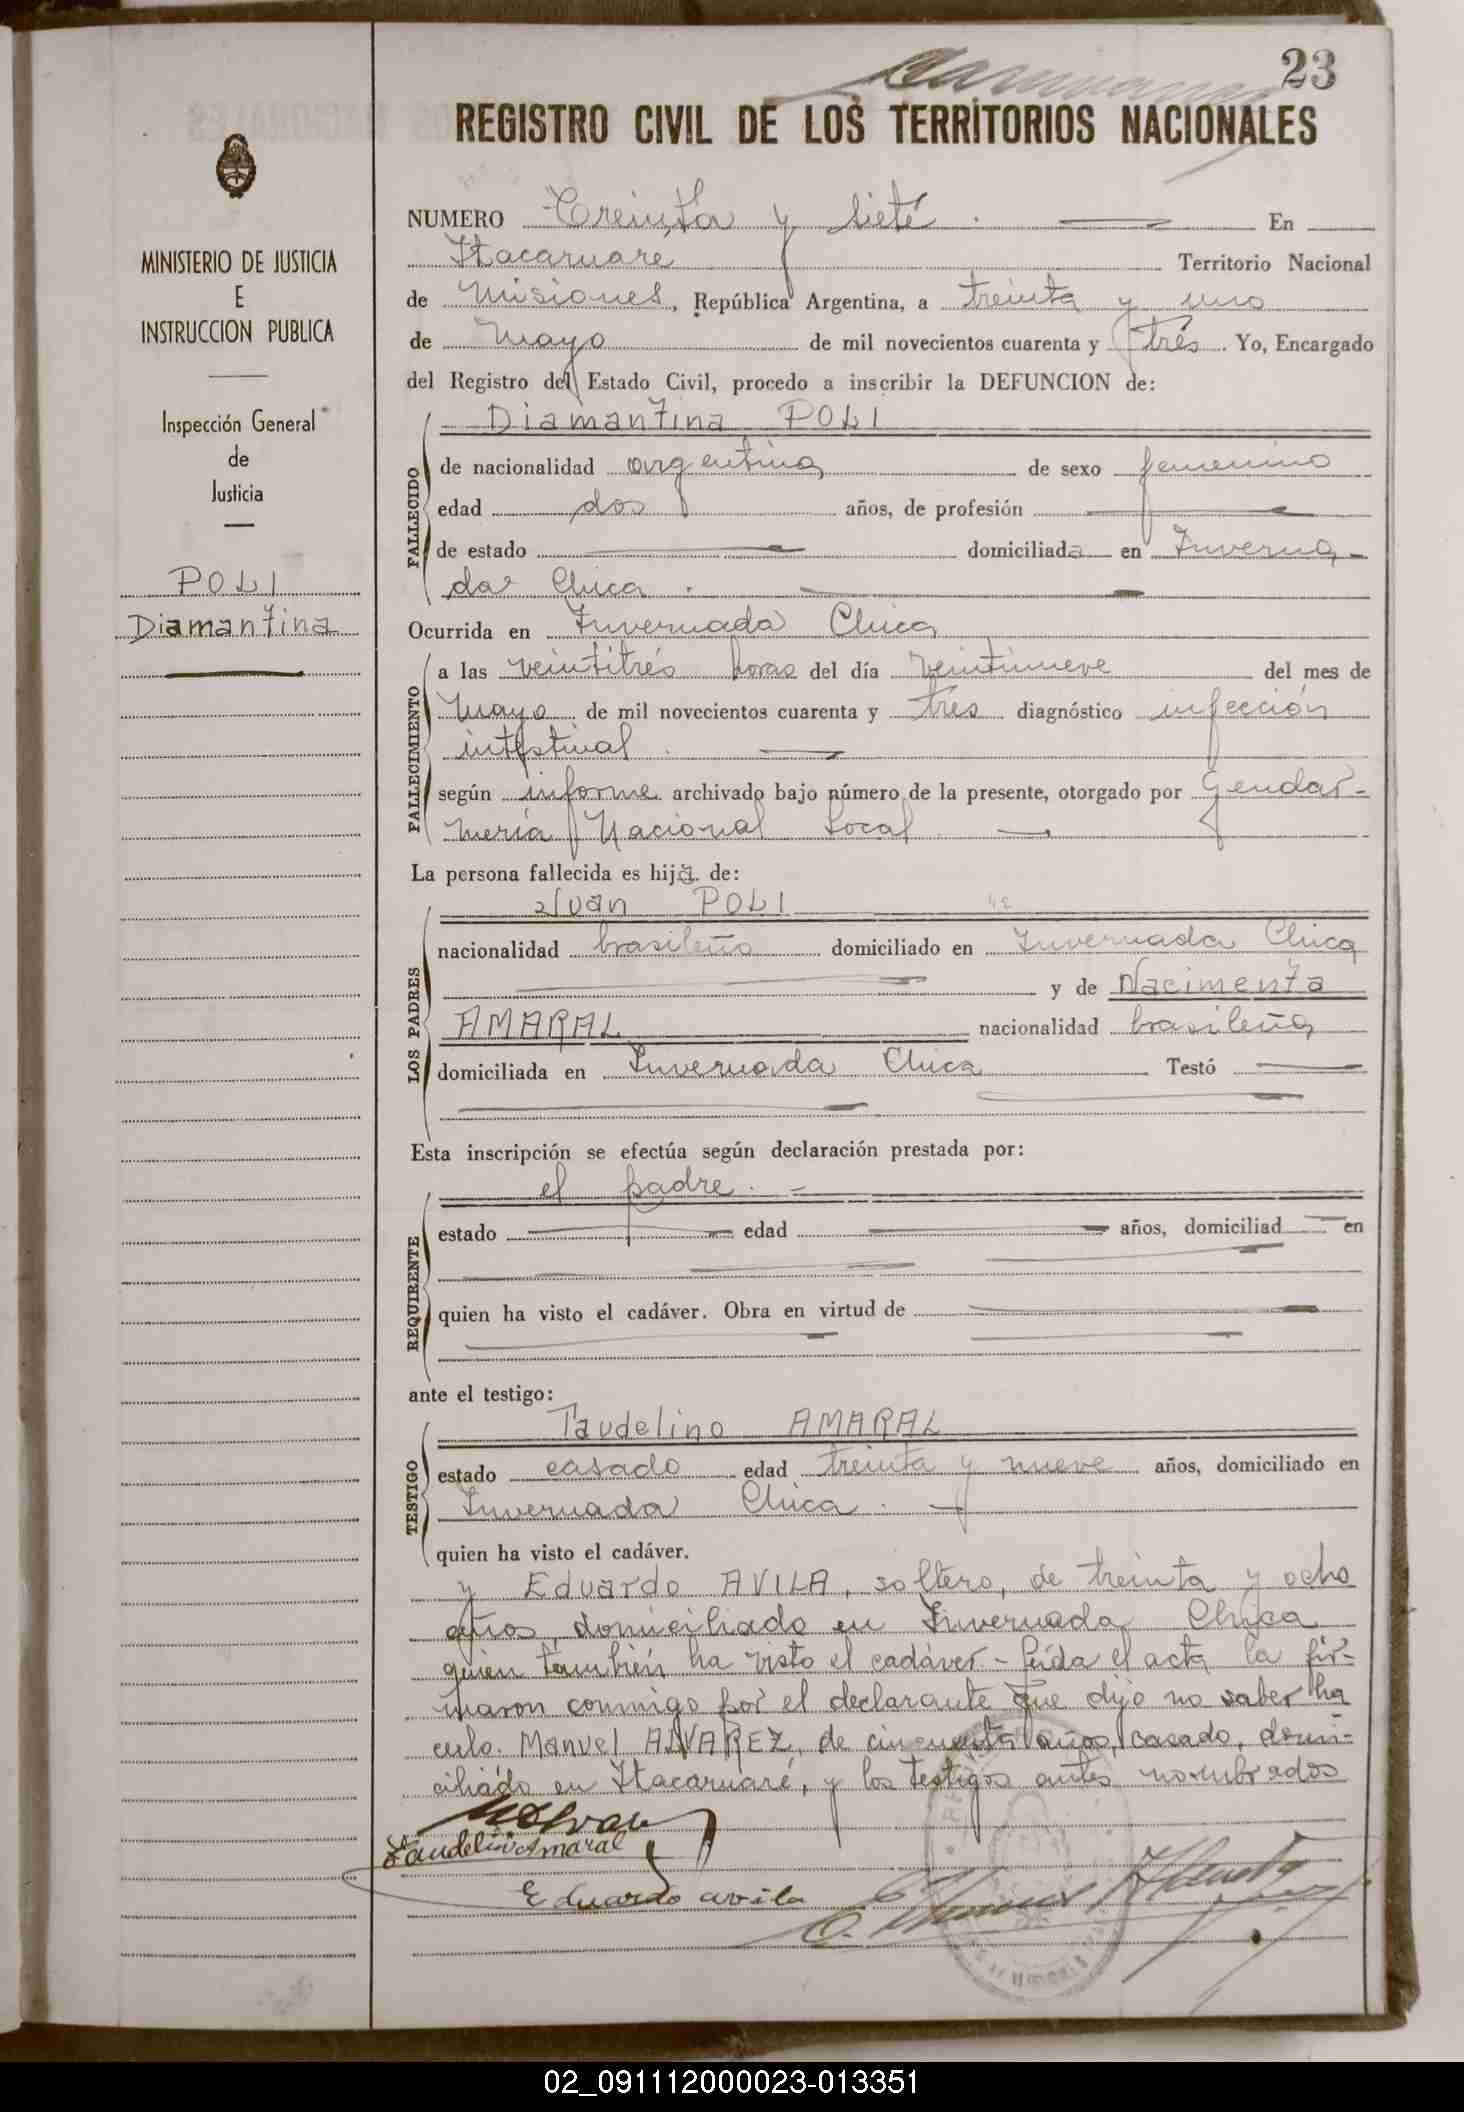 23
REGISTRO CIVIL DE LOS TERRITORIOS NACIONALES
MINISTERIO DE JUSTICIA
E
INSTRUCCION PUBLICA
Inspección General
de
Justicia
POLI
Diamantina
NUMERO Treinta y siete . En
Itacaruare Territorio Nacional
de Misiones, República Argentina, a treinta y uno
de Mayo de mil novecientos cuarenta y trés. Yo, Encargado
del Registro del Estado Civil, procedo a inscribir la DEFUNCION de:
Diamantina POLI
FALLECIDO
de nacionalidad argentina de sexo femenino
edad dos años, de profesión
de estado domiciliada en Inverna-
da Chica .
Ocurrida en Invernada Chica
FALLECIMIENTO
a las veintitrés horas del día veintinueve del mes de
Mayo de mil novecientos cuarenta y tres diagnóstico infección
intestinal .
según informe archivado bajo número de la presente, otorgado por Gendar-
mería Nacional Local
La persona fallecida es hija de:
Juan POLI
LOS PADRES
nacionalidad brasileño domiciliado en Invernada Chica
y de Nacimenta
AMARAL nacionalidad brasileña
domiciliada en Invernada Chica Testó
Esta inscripción se efectúa según declaración prestada por:
el padre . -
REQUIRENTE
estado edad años, domiciliad en
quien ha visto el cadáver. Obra en virtud de
ante el testigo:
Taudelino AMARAL
TESTIGO
estado casado edad treinta y nueve años, domiciliado en
Invernada Chica .
quien ha visto el cadáver.
y Eduardo AVILA, soltero, de treinta y ocho
años, domiciliado en Invernada Chica
quien también ha visto el cadáver.- Leída el acta la fir-
maron conmigo por el declarante que dijo no saber ha
cerlo. Manuel ALVAREZ, de cincuenta años, casado, domi-
ciliado en Itacaruaré, y los testigos antes nombrados
Taudelino Amaral
Eduardo avila
02_091112000023-013351